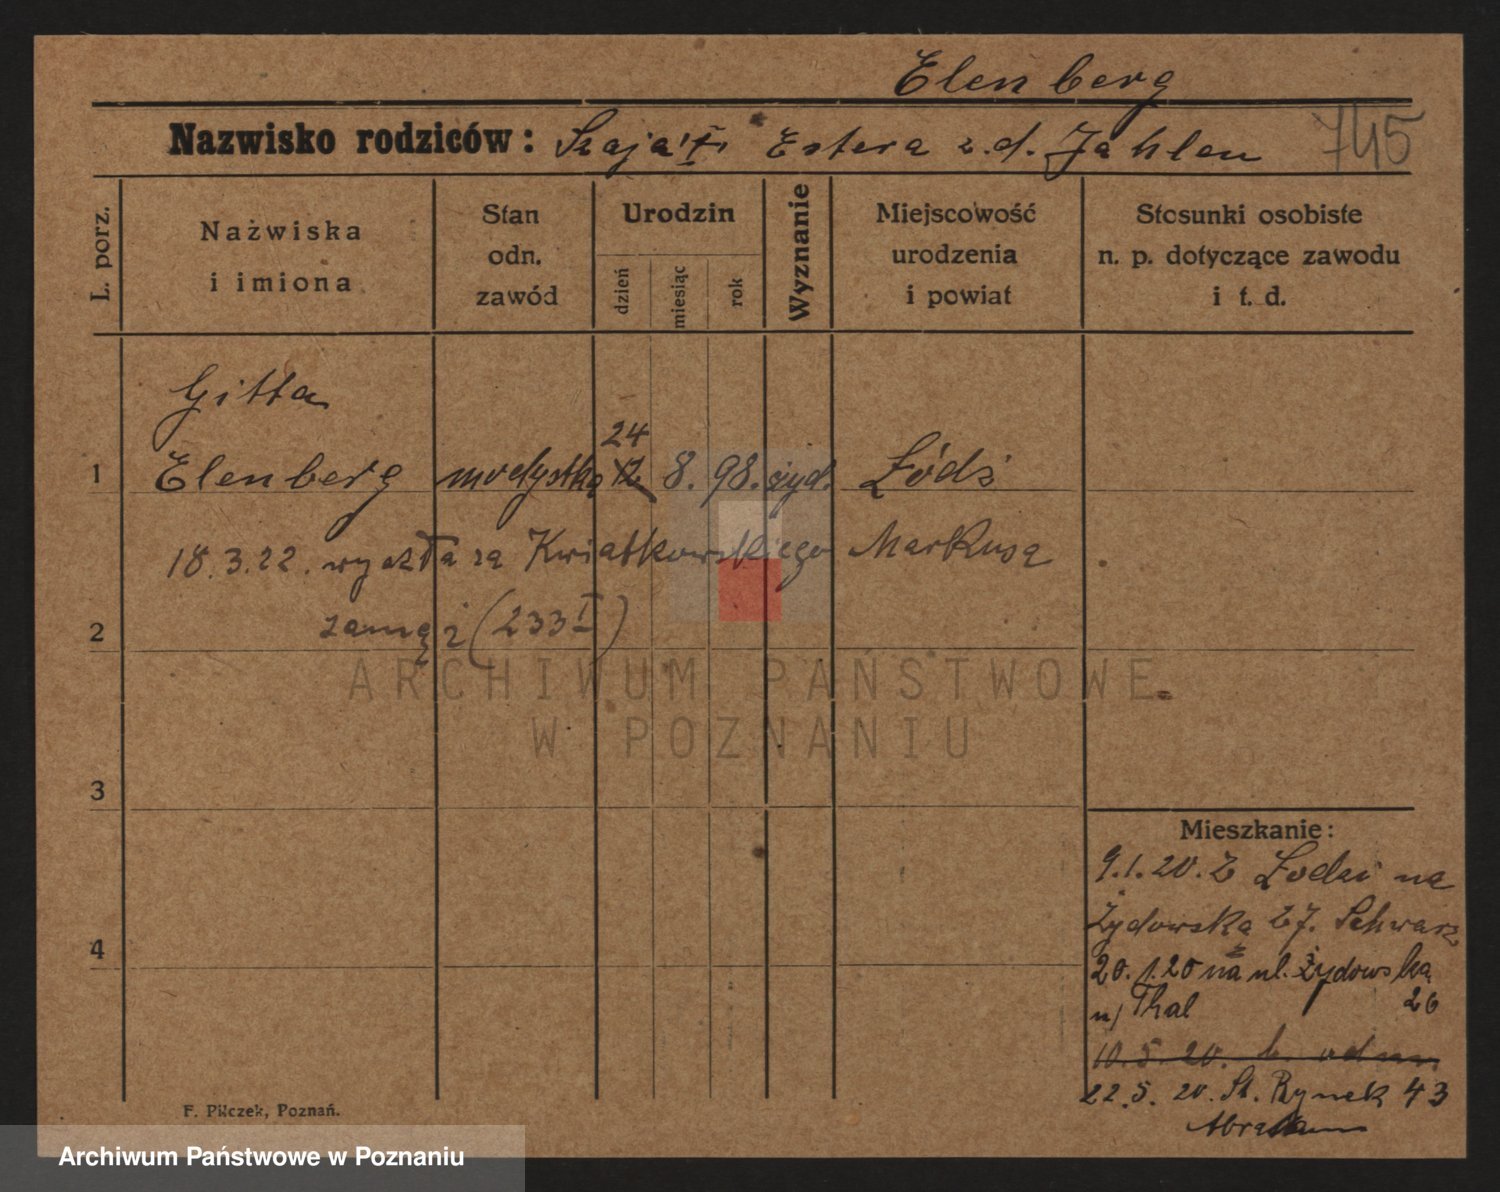 Elenberg
Nazwisko rodziców: Szaja i Estera z.d. Jahlen 745
L. porz.
Nazwiska i imiona
Stan odn. zawód
Urodzin
dzień
miesiąc
rok
Wyznanie
Miejscowość urodzenia i powiat
Stosunki osobiste n. p. dotyczące zawodu i t. d.
Gitta
24
1 Elenberg modystka 12 8. 98. żyd. Łódź
18.3.22. wyszła za Kwiatkowskiego Markusa
2 zamąż (233 I)
ARCHIWUM PAŃSTWOWE
W POZNANIU
3
Mieszkanie:
9.1.20. Z Łodzi na
Żydowska 27. Schwarz
4
20.1.20 na ul. Żydowska
n/ Thal 26
10.5.20.
22.5.20. St. Rynek 43
Abraham
F. Pilczek, Poznań.
Archiwum Państwowe w Poznaniu